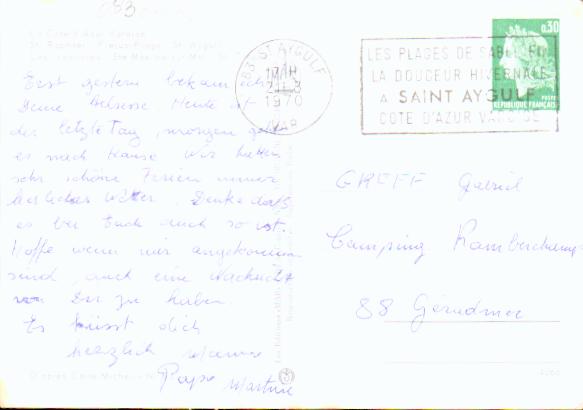 083
La Côte d'Azur Varoise
83 ST AYGULF
17H
2-8
1970
VAR
LES PLAGES DE SABLE FIN
LA DOUCEUR HIVERNALE
A SAINT AYGULF
COTE D'AZUR VAROISE
0,30
POSTES
REPUBLIQUE FRANÇAISE
Erst gestern bekam ich
Deine Adresse Heute ist
der letzte Tag, morgen geht
es nach Hause wir hatten
sehr schöne Ferien immer
herrliches Wetter. Denke daß
es bei Euch auch so ist.
Hoffe wenn wir angekommen
sind, auch eine Nachricht
von Dir zu haben.
Es küsst dich
herzlich Mama
Papa Martine
GREFF Gabriel
Camping Ramberchamp
88 Gérardmer